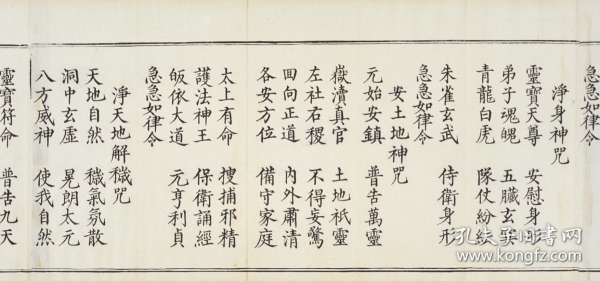 急急如律令
淨身神咒
靈寶天尊 安慰身形
弟子魂魄 五臟玄冥
青龍白虎 隊仗紛紜
朱雀玄武 侍衛身形
急急如律令
安土地神咒
元始安鎮 普告萬靈
嶽瀆真官 土地祇靈
左社右稷 不得妄驚
回向正道 內外肅清
各安方位 備守家庭
太上有命 搜捕邪精
護法神王 保衛誦經
皈依大道 元亨利貞
急急如律令
淨天地解穢咒
天地自然 穢氣氛散
洞中玄虛 晃朗太元
八方威神 使我自然
靈寶符命 普告九天
孔夫子旧书网